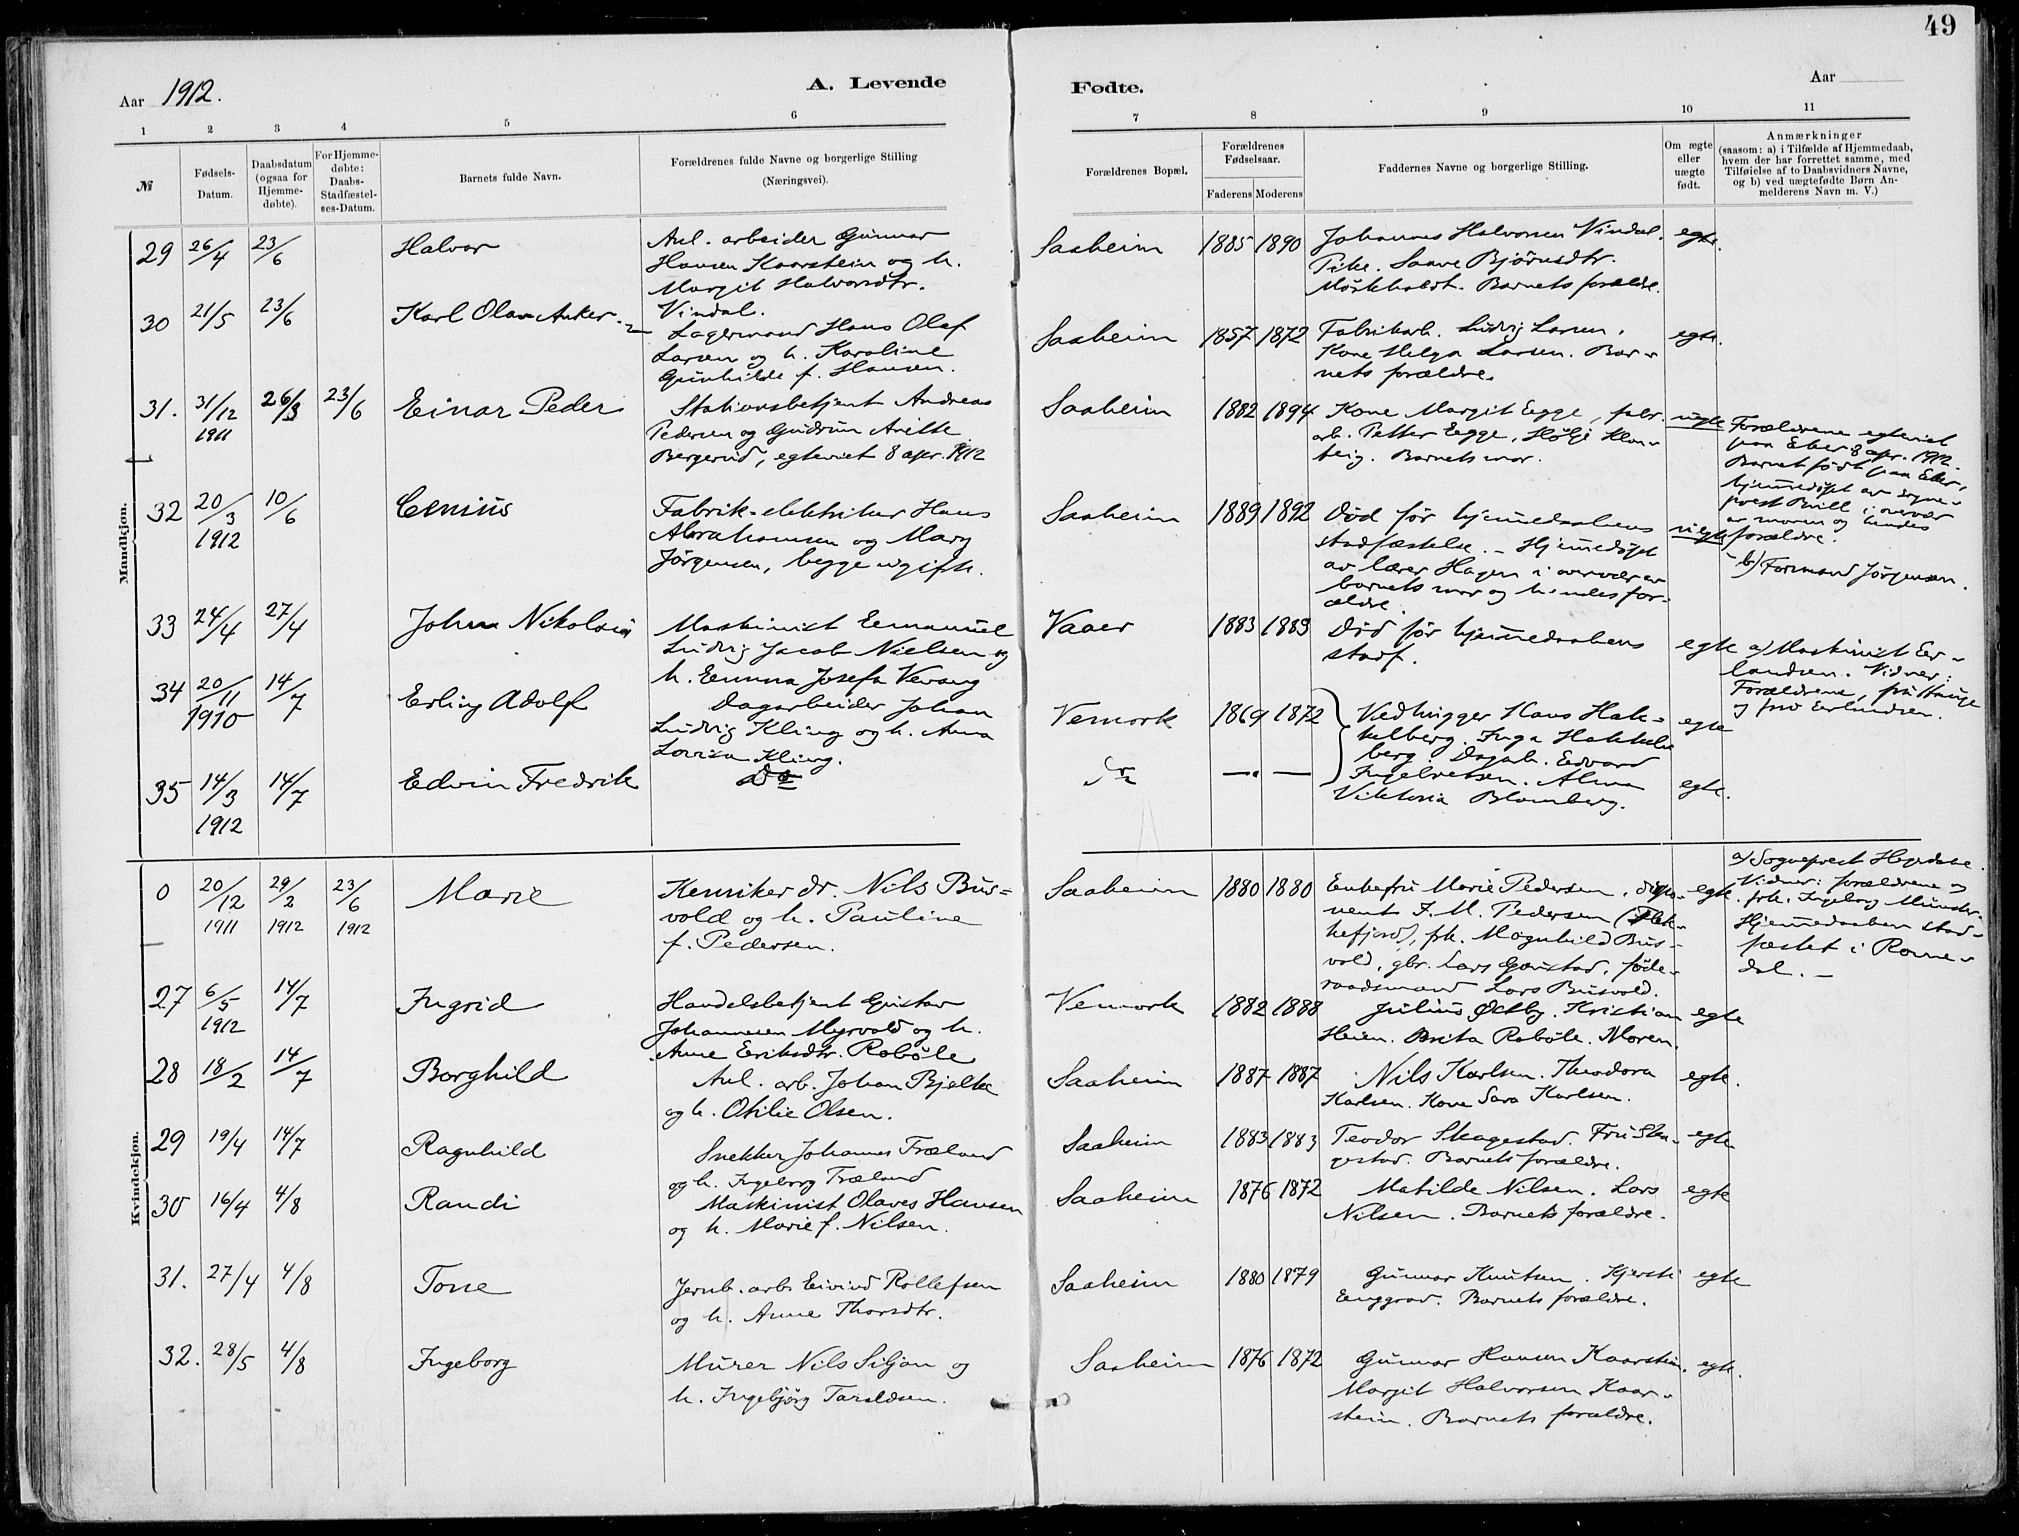 49
Aar 1912.
A. Levende
Fødte.
Aar
1 2 3 4 5 6 7 8 9 10 11
№
Fødsels-
Datum.
Daabsdatum
(ogsaa for
Hjemme-
døbte).
For Hjemme-
døbte:
Daabs-
Stadfæstel-
ses-Datum.
Barnets fulde Navn.
Forældrenes fulde Navne og borgerlige Stilling
(Næringsvei).
Forældrenes Bopæl.
Forældrenes
Fødselsaar.
Faderens Moderens
Faddernes Navne og borgerlige Stilling.
Om ægte
eller
uægte
født.
Anmærkninger
(saasom: a) i Tilfælde af Hjemmedaab,
hvem der har forrettet samme, med
Tilføielse af to Daabsvidners Navne,
og b) ved uægtefødte Børn An-
melderens Navn m. V.)
Mandkjøn.
29 26/4 23/6 Halvor
Anl. arbeider Gunnar
Hansen Kaarstein og h.
Margit Halvorsdtr.
Vindal.
Saaheim 1885 1890
Johannes Halvorsen Vindal.
Pike. Saave Bjørnsdtr.
Barnets forældre.
egte.
30 21/5 23/6 Karl Olav Anker
Lagermand Hans Olaf
Larsen og h. Karoline
Gunhilde f. Hansen.
Saaheim 1857 1872
Fabrikarb. Ludvig Larsen.
Kone Helga Larsen. Bar-
nets forældre.
egte.
31. 31/12 1911 26/3 23/6 Einar Peder
Stationsbetjent Andreas
Pedersen og Gudrun
Bergerud, egteviet 8 apr. 1912
Saaheim 1882 1894
Kone Margit Egge, fabr.
arb. Petter Egge,
Barnets mor.
uegte
Forældrene egteviet
paa 8 apr. 1912.
Barnet født paa
hjemmedøpt av sogne-
prest i overvær
av moren og hendes
forældre.
32 20/3 1912 10/6 Cenius
Fabrik-elektriker Hans
Abrahamsen og Mary
Jørgensen, begge ugifte.
Saaheim 1889 1892
Død før hjemmedaabens
stadfæstelse. - Hjemmedøpt
av lærer Hagen i overvær av
barnets mor og hendes for-
ældre.
uegte
b) Formand Jørgensen.
33 24/4 27/4 John Nikolai
Maskinist Emanuel
Ludvig Jacob Nielsen og
h. Emma Josefa Verang
Vaaer 1883 1883
Død før hjemmedaabens
stadf.
egte
a) Maskinist Er-
landsen. Vidner:
Forældrene, fru Hauge
og fru Erlandsen.
34 20/11 1910 14/7 Erling Adolf
Dagarbeider Johan
Ludvig Kling og h. Anna
Lovisa Kling.
Vemork 1869 1872
Vedhugger Hans Hak-
kelberg. Inga Hakkel-
berg. Dagarb. Edvard
Ingebretsen. Alma
Viktoria Blomberg.
egte
35 14/3 1912 14/7 Edvin Fredrik
Do
do — —
egte.
Kvindekjøn.
0 20/12 1911 29/2 1912 23/6 1912 Marie
Kemiker dr. Nils Bus-
vold og h. Pauline
f. Pedersen.
Saaheim 1880 1880
Enkefru Marie Pedersen, dispo-
nent F. M. Pedersen (Flek-
kefjord), frk. Magnhild Bus-
vold, gbr. Lars føde-
raadsmand Lars Busvold.
egte.
a) Sogneprest
Vidner: forældrene og
frk. Ingeborg Munster.
Hjemmedaaben stad-
fæstet i Rome-
dal. -
27 6/5 1912 14/7 Ingrid
Handelsbetjent Gustav
Johannesen Myrvold og h.
Anne Eriksdtr. Rabøle
Vemork 1882 1888
Julius Østby. Kristian
Heien. Brita Rabøle. Moren.
egte
28 18/2 14/7 Borghild
Anl. arb. Johan Bjelke
og h. Otilie Olsen.
Saaheim 1887 1887
Nils Karlsen. Theodora
Karlsen. Kone Sara Karlsen.
egte.
29 19/4 14/7 Ragnhild
Snekker Johannes Træland
og h. Ingeborg Træland
Saaheim 1883 1883
Teodor Skagestad. Fru Ska-
gestad. Barnets forældre.
egte
30 16/4 4/8 Randi
Maskinist Olaves Hansen
og h. Marie f. Nilsen.
Saaheim 1876 1872
Matilde Nilsen. Lars
Nilsen. Barnets forældre.
egte
31. 27/4 4/8 Tone
Jernb. arb. Eivind Rollefsen
og h. Anne Thorsdtr.
Saaheim 1880 1879
Gunnar Knutsen. Kjersti
Enggrav. Barnets forældre.
egte
32. 28/5 4/8 Ingeborg
Murer Nils Siljan og
h. Ingebjørg Taraldsen.
Saaheim 1876 1872
Gunnar Hansen Kaarstein.
Margit Halvorsen Kaar-
stein. Barnets forældre.
egte.